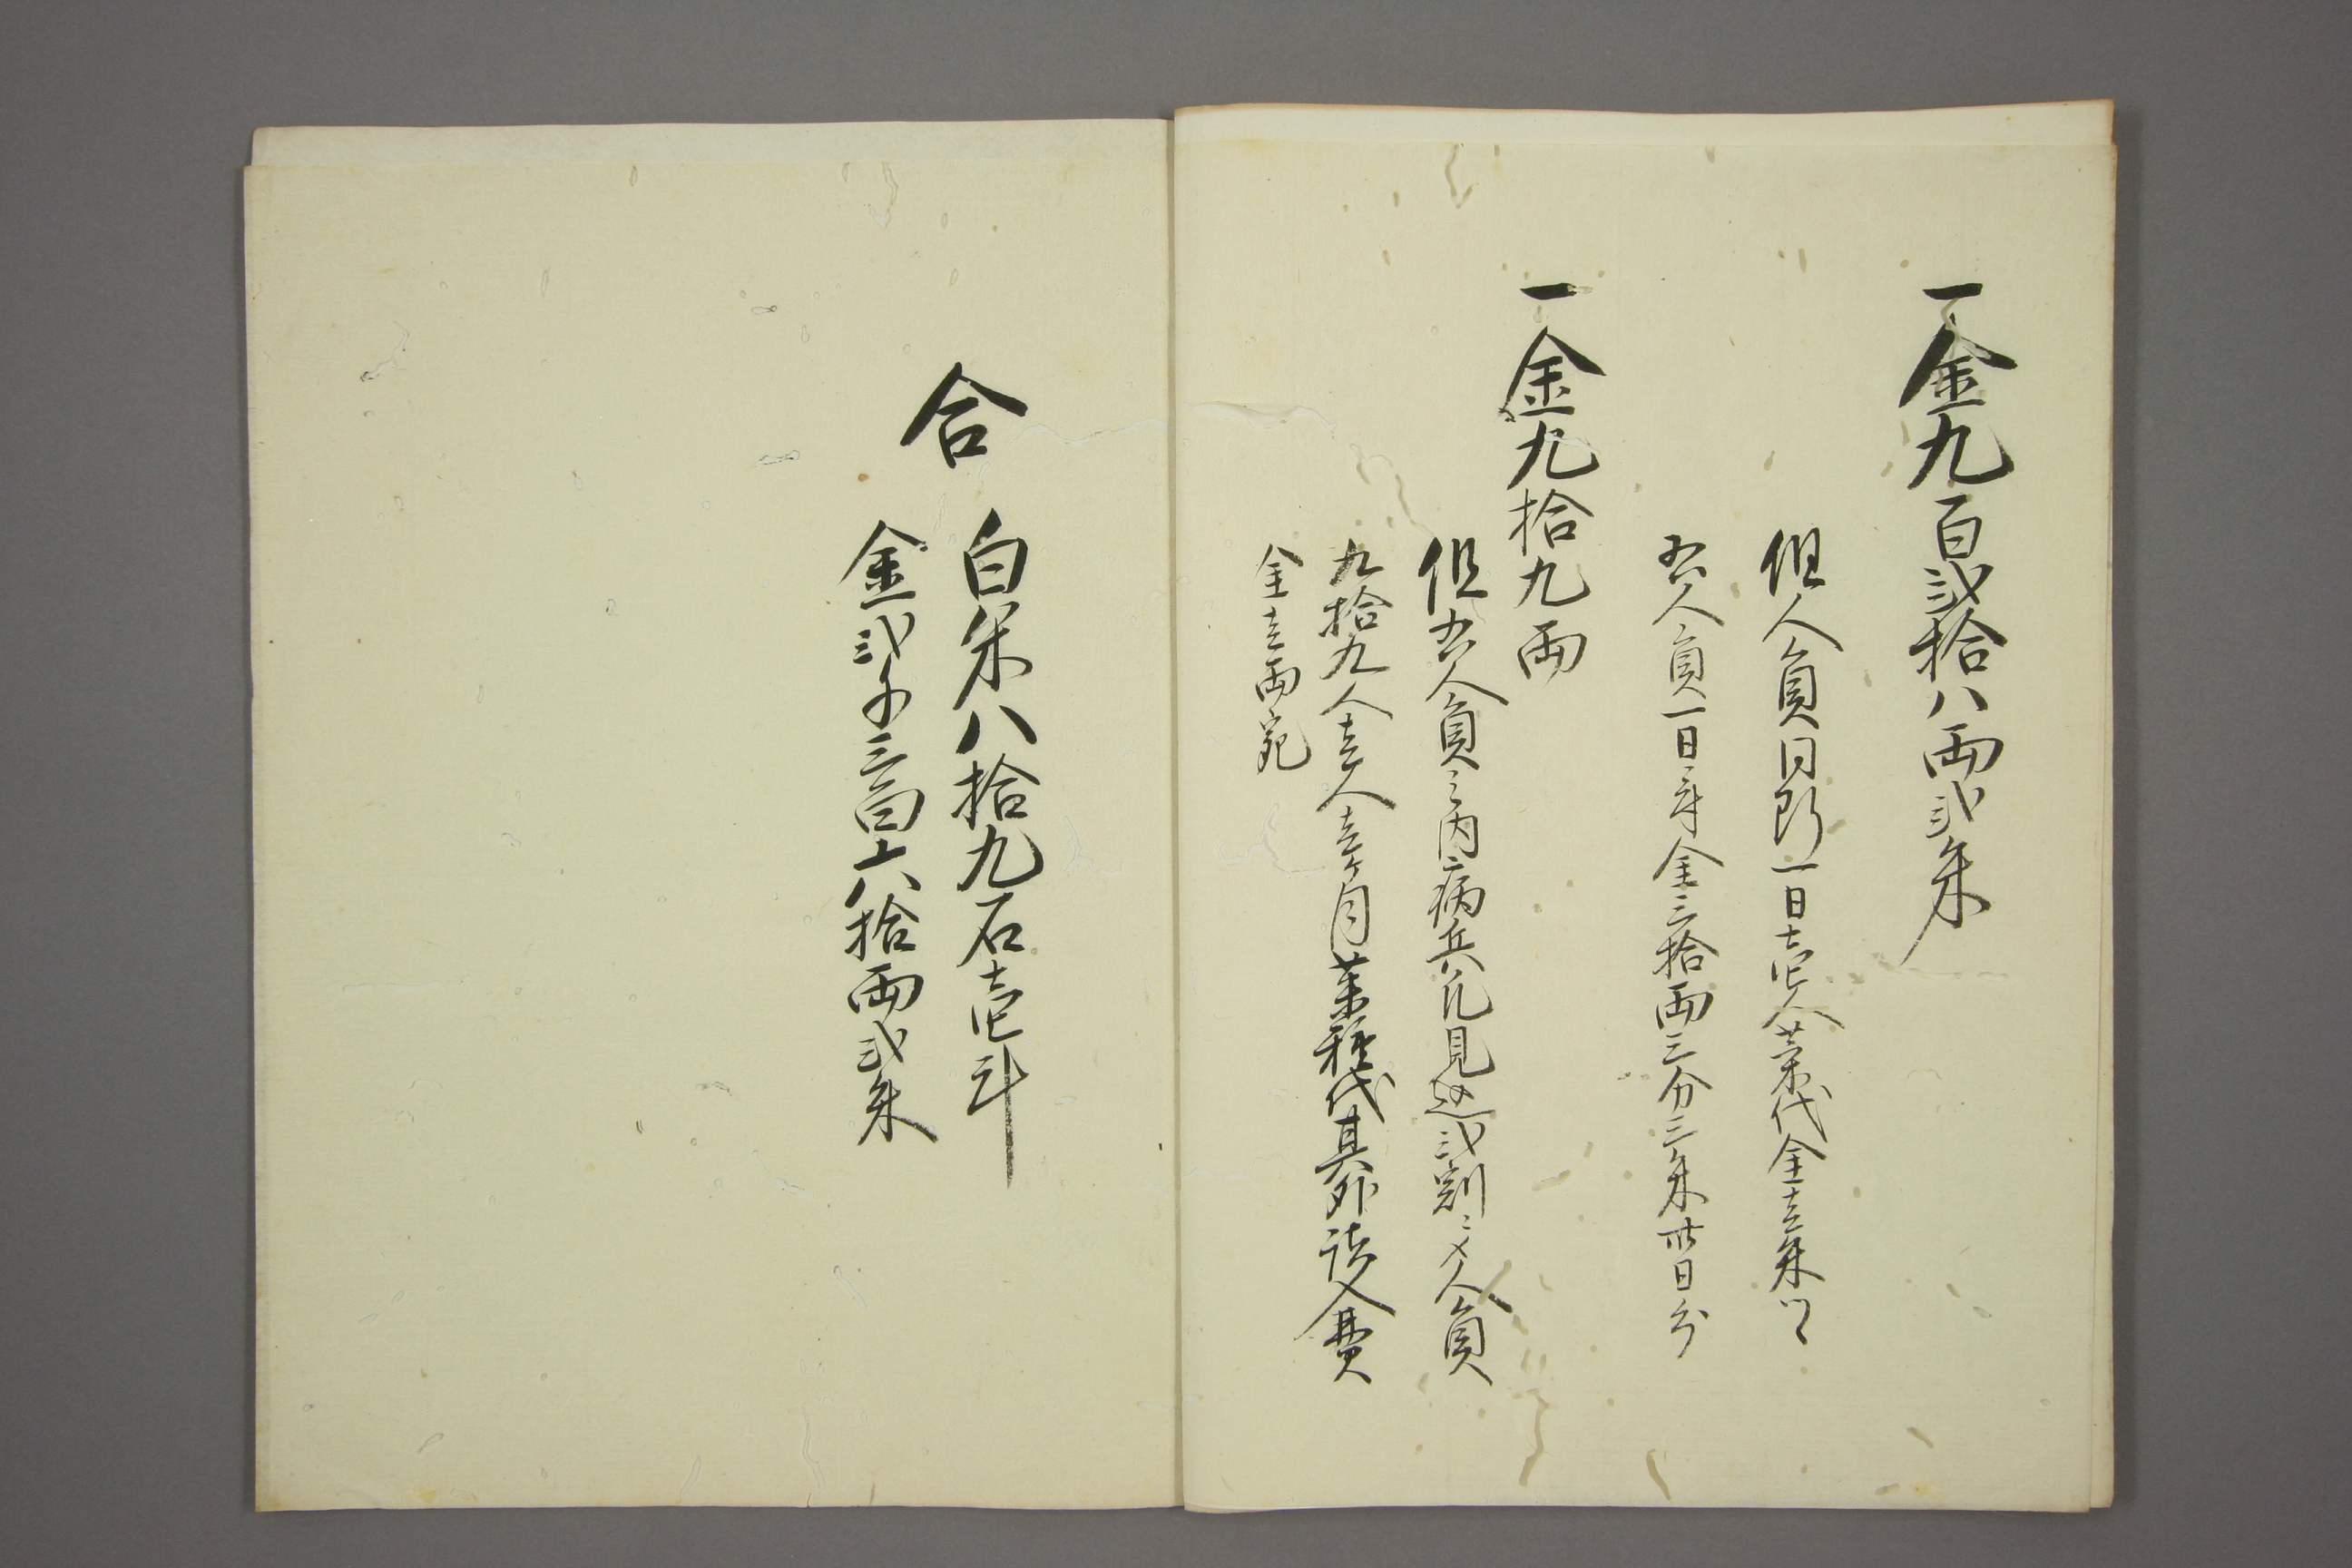 一金九百弐拾八両弐朱
但人員同断一日壱人菜代金壱朱ツヽ
右人員一日ニ付金三拾両三分三朱卅日分
一金九拾九両
但右人員之内病兵凡見込弐割ニ〆人員
九拾九人壱人壱ケ月薬種代其外諸入費
金壱両宛
合
白米八拾九石壱斗
金弐千三百六拾両弐朱